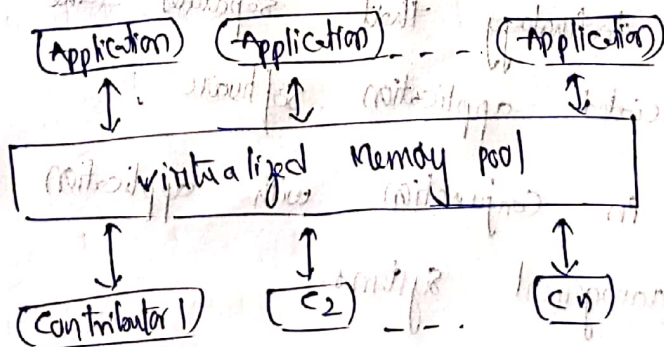 (Application) (Application) - - - - (Application)
virtualized Memory pool
(Contributor 1) (C2) - - - . (Cn)